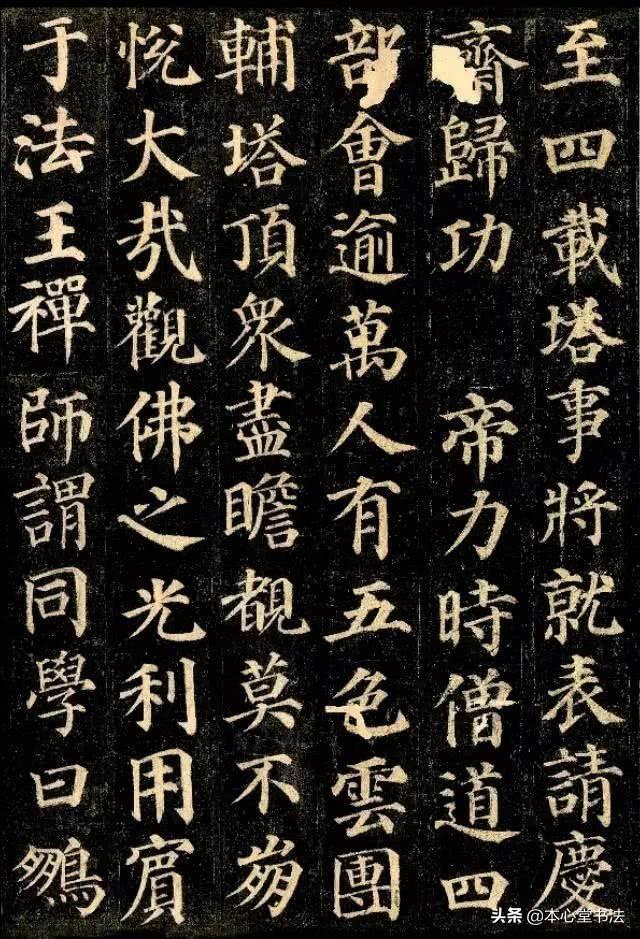 至四載塔事將就表請慶
齋歸功 帝力時僧道四
部會逾萬人有五色雲團
輔塔頂衆盡瞻覩莫不崩
悅大哉觀佛之光利用賓
于法王禪師謂同學曰鵬
头条 @本心堂书法